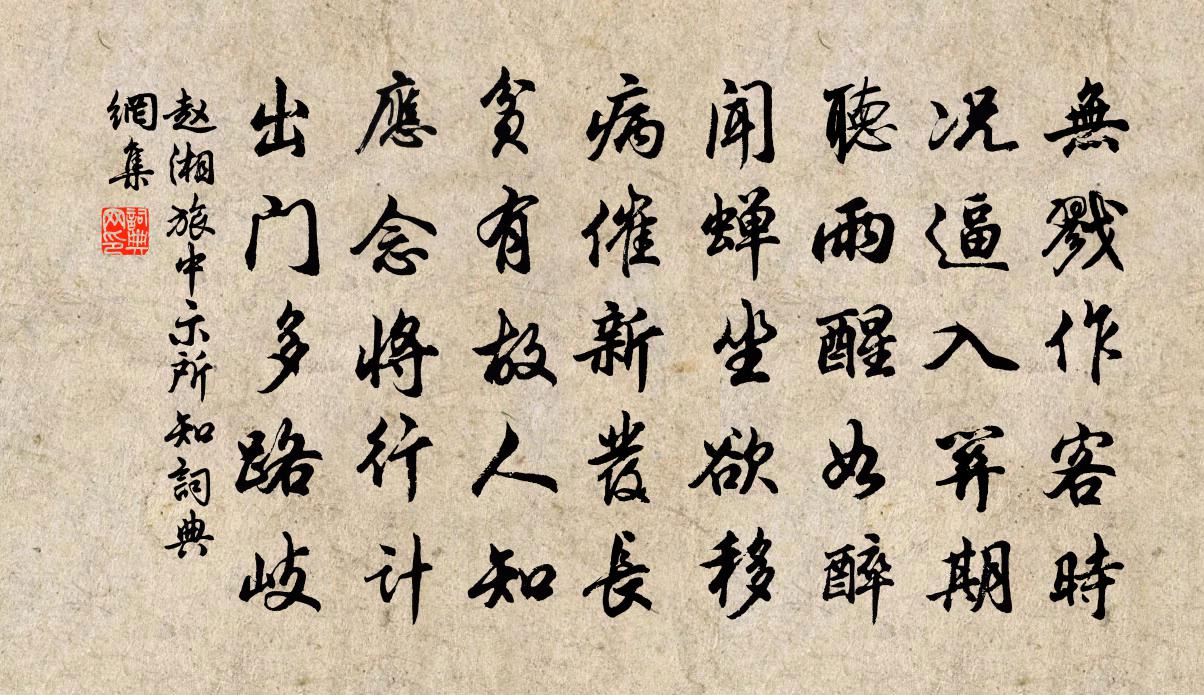 無戮作客時
况逼入笄期
聽雨醒如醉
闻蝉坐欲移
病催新發長
貧有故人知
應念将行计
出门多路歧
赵湘旅中示所知詞典
網集
詞典
网印